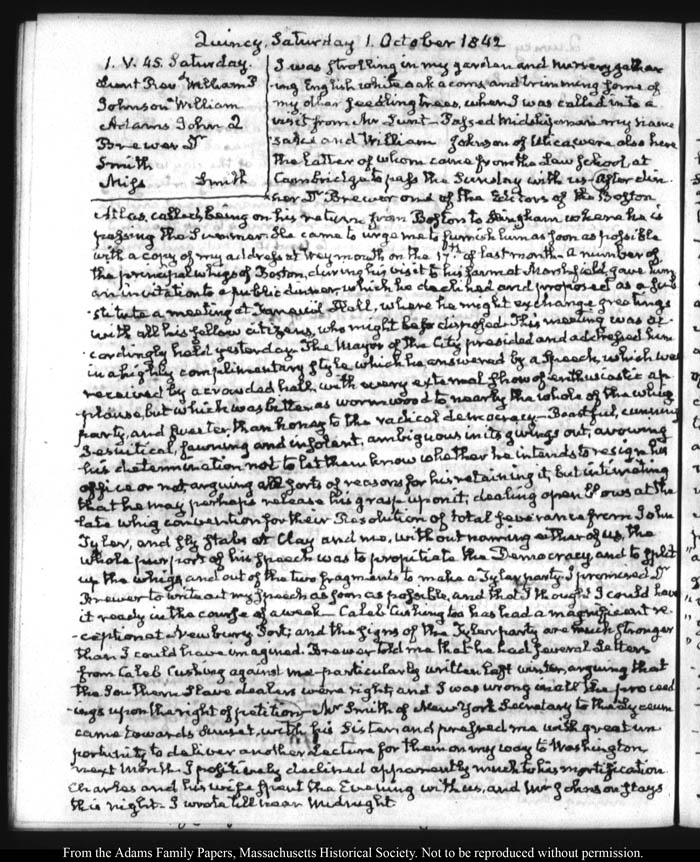 Quincy, Saturday 1. October 1842
1. V. 45. Saturday.
Lunt Revd. William P
Johnson William
Adams John Q
Brewer Dr
Smith
Miss Smith
I was strolling in my garden and nursery gather
ing English white oak acorns and trimming some of
my other seedling trees, when I was called in to a
visit from Mr Lunt— Passed Midshipman my name
sake and William Johnson of Utica were also here
the latter of whom came from the Law School, at
Cambridge to pass the Sunday with us— After din
ner Dr Brewer one of the Editors of the Boston
Atlas, called, being on his return from Boston to Hingham where he is
passing the Summer. He came to urge me to furnish him as soon as possible
with a copy of my address at Weymouth on the 17th of last month— A number of
the principal whigs of Boston, during his visit to his farm at Marshfield, gave him
an invitation to a public dinner, which he declined and proposed as a sub
stitute a meeting at Faneuil Hall, where he might exchange greetings
with all his fellow citizens, who might be so disposed. This meeting was ac
cordingly held yesterday. The Mayor of the City presided and addressed him
in a highly complimentary style which he answered by a Speech, which was
received by a crowded hall, with every external show of enthusiastic ap
plause, but which was bitter as wormwood to nearly the whole of the whig
party, and sweeter than honey to the radical democracy— Boastful, cunning
Jesuitical, fawning and insolent, ambiguous in its givings out, avowing
his determination not to let them know whether he intends to resign his
office or not, arguing all sorts of reasons for his retaining it, but intimating
that he may perhaps release his grasp upon it, dealing open blows at the
late whig convention for their Resolution of total severance from John
Tyler, and sly stabs at Clay and me, without naming either of us, the
whole purport of his speech was to propitiate the Democracy, and to split
up the whigs, and out of the two fragments to make a Tyler party. I promised Dr
Brewer to write out my speech as soon as possible, and that I thought I could have
it ready in the course of a week— Caleb Cushing too has had a magnificent re
ception at Newbury Port; and the signs of the Tyler party are much stronger
than I could have imagined. Brewer told me that he had several Letters
from Caleb Cushing against me particularly written last winter, arguing that
the Southern Slave dealers were right, and I was wrong in all the proceed
ings upon the right of petition— Mr Smith of New York Secretary to the Lyceum
came towards Sunset, with his Sister and pressed me with great im
portunity to deliver another Lecture for them on my way to Washington
next Month. I positively declined apparently much to his mortification
Charles and his wife spent the Evening with us, and Mr Johnson stays
this night— I wrote till near Midnight
From the Adams Family Papers, Massachusetts Historical Society. Not to be reproduced without permission.